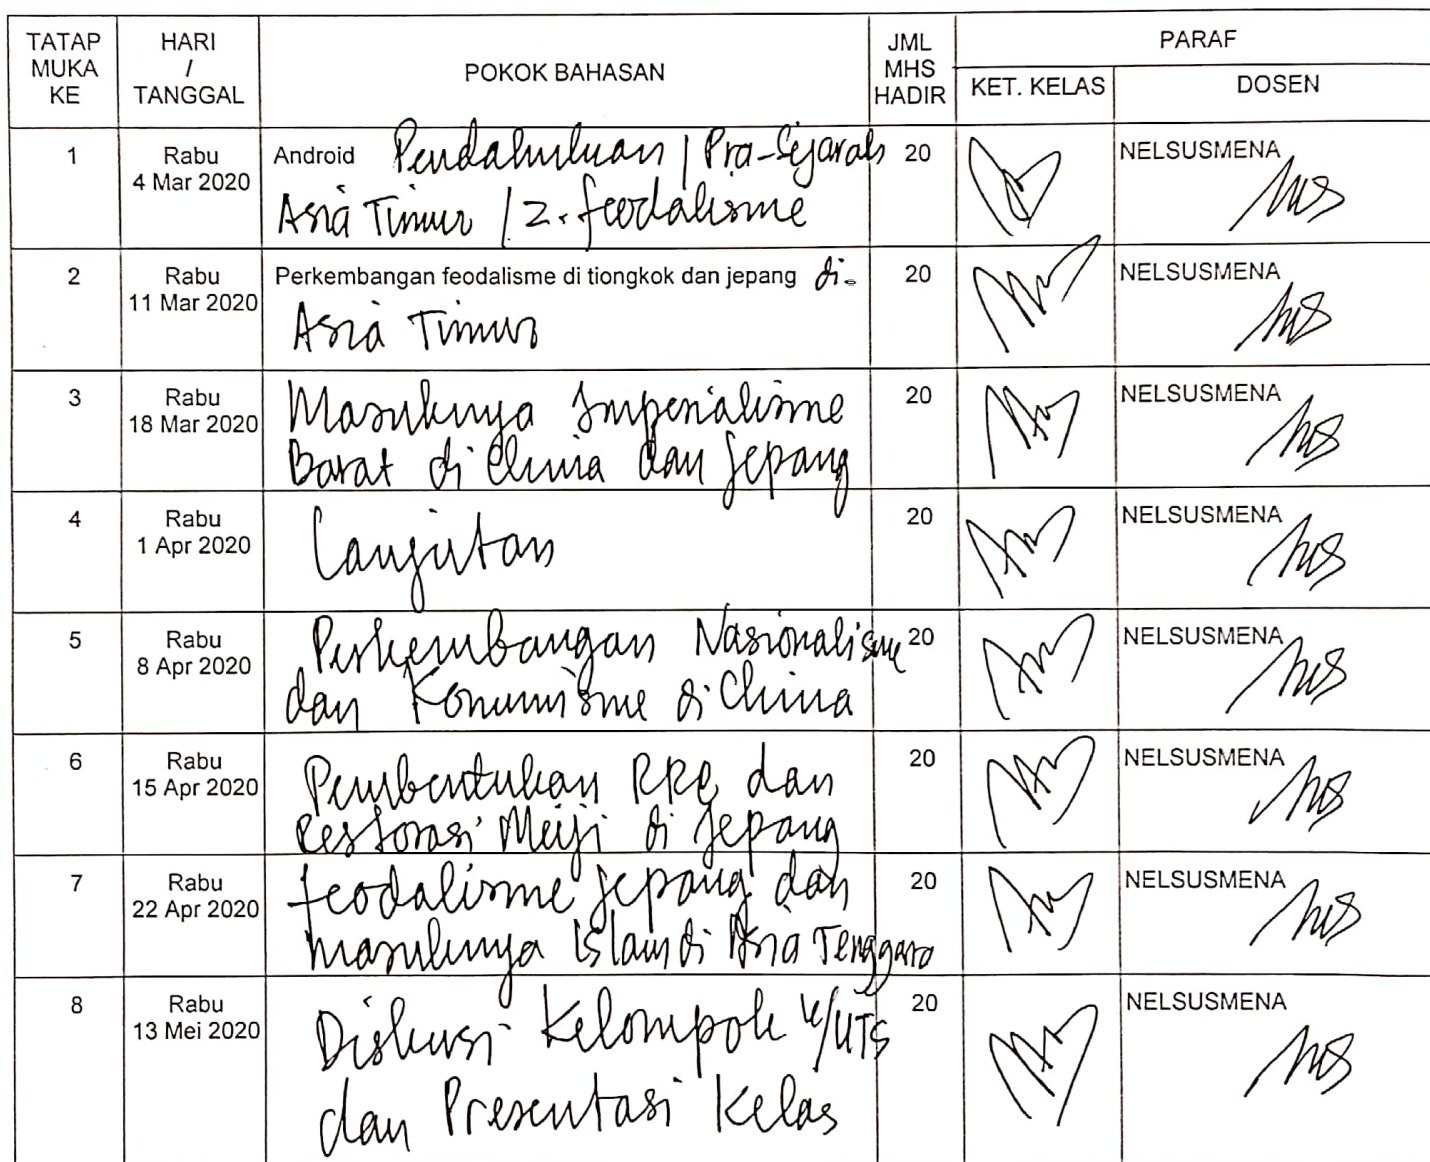 TATAP MUKA KE
HARI / TANGGAL
POKOK BAHASAN
JML MHS HADIR
PARAF
KET. KELAS
DOSEN
1
Rabu
4 Mar 2020
Android Pendahuluan / Pra-Sejarah
Asia Timur / 2. feodalisme
20
NELSUSMENA
2
Rabu
11 Mar 2020
Perkembangan feodalisme di tiongkok dan jepang di
Asia Timur
20
NELSUSMENA
3
Rabu
18 Mar 2020
Masuknya Imperialisme
Barat di China dan Jepang
20
NELSUSMENA
4
Rabu
1 Apr 2020
Lanjutan
20
NELSUSMENA
5
Rabu
8 Apr 2020
Perkembangan Nasionalisme
dan Komunisme di China
20
NELSUSMENA
6
Rabu
15 Apr 2020
Pembentukan RRC dan
Restorasi Meiji di Jepang
20
NELSUSMENA
7
Rabu
22 Apr 2020
feodalisme Jepang dan
masuknya Islam di Asia Tenggara
20
NELSUSMENA
8
Rabu
13 Mei 2020
Diskusi Kelompok u/UTS
dan Presentasi Kelas
20
NELSUSMENA